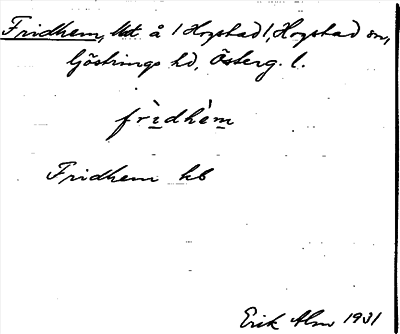 Fridhem, lht å 1 Hogstad 1, Hogstad sn,
Göstrings hd, Österg. l.
frìdhèm
Fridhem kb
Erik Alm 1931